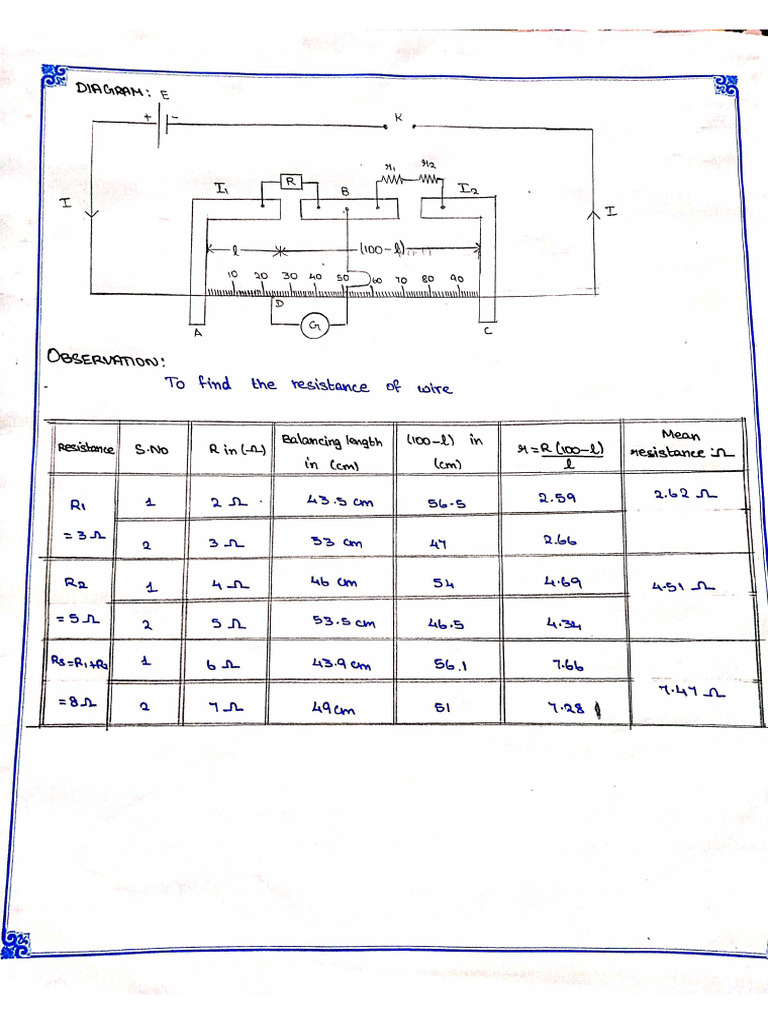 DIAGRAM: E
+ -
K
r1 r2
I1 R B I2
I I
l (100-l)
10 20 30 40 50 60 70 80 90
D
A G C
OBSERVATION:
To find the resistance of wire
Resistance S.No R in (Ω) Balancing length in (cm) (100-l) in (cm) r = R(100-l)/l Mean resistance Ω
R1 1 2 Ω 43.5 cm 56.5 2.59 2.62 Ω
= 3 Ω 2 3 Ω 53 cm 47 2.66
R2 1 4 Ω 46 cm 54 4.69 4.51 Ω
= 5 Ω 2 5 Ω 53.5 cm 46.5 4.34
Rs = R1+R2 1 6 Ω 43.9 cm 56.1 7.66
= 8 Ω 2 7 Ω 49 cm 51 7.28 7.47 Ω